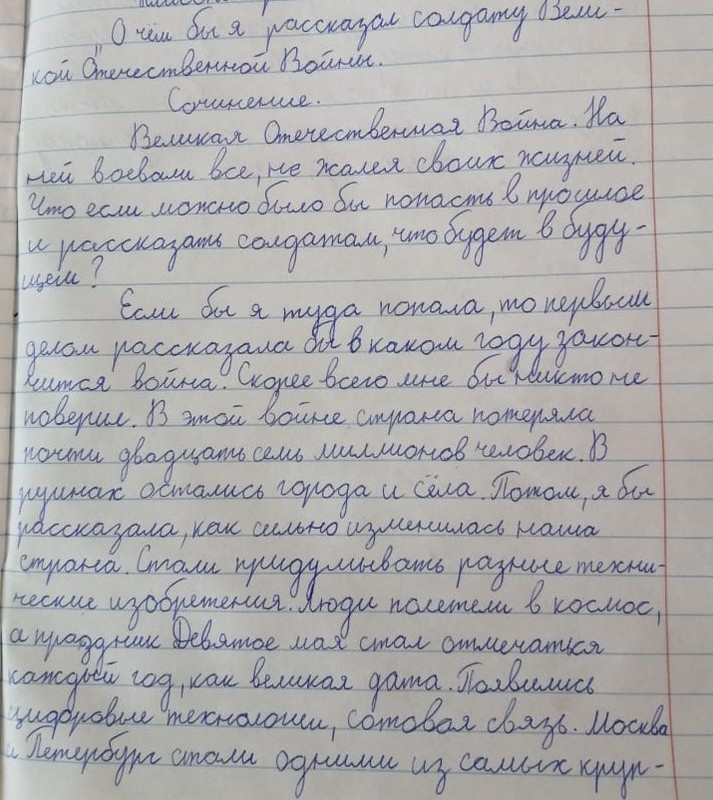 „О чём бы я рассказал солдату Вели-
кой Отечественной Войны.
Сочинение.
Великая Отечественная Война. На
ней воевали все, не жалея своих жизней.
Что если можно было бы попасть в прошлое
и рассказать солдатам, что будет в буду-
щем?
Если бы я туда попала, то первым
делом рассказала бы в каком году закон-
чится война. Скорее всего мне бы никто не
поверил. В этой войне страна потеряла
почти двадцать семь миллионов человек. В
руинах остались города и сёла. Потом, я бы
рассказала, как сильно изменилась наша
страна. Стали придумывать разные техни-
ческие изобретения. Люди полетели в космос,
а праздник Девятое мая стал отмечаться
каждый год, как великая дата. Появились
цифровые технологии, сотовая связь. Москва
и Петербург стали одними из самых круп-